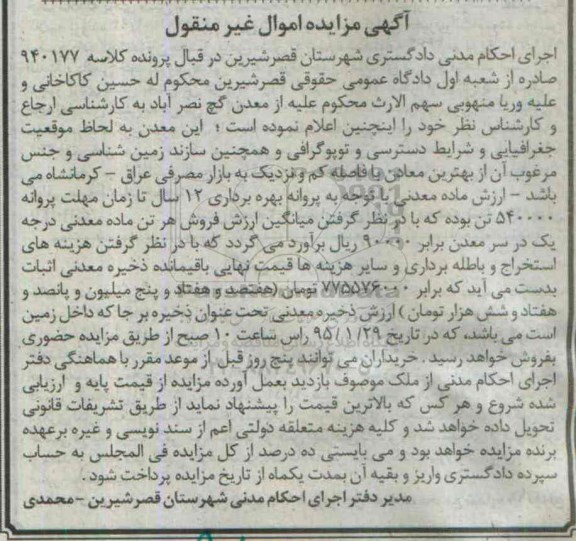 آگهی مزایده اموال غیر منقول
اجرای احکام مدنی دادگستری شهرستان قصرشیرین در قبال پرونده کلاسه ۹۴۰۱۷۷
صادره از شعبه اول دادگاه عمومی حقوقی قصرشیرین محکوم له حسین کاکاخانی و
علیه وریا منهوبی سهم الارث محکوم علیه از معدن گچ نصر آباد به کارشناسی ارجاع
و کارشناس نظر خود را اینچنین اعلام نموده است ؛ این معدن به لحاظ موقعیت
جغرافیایی و شرایط دسترسی و توپوگرافی و همچنین سازند زمین شناسی و جنس
مرغوب آن از بهترین معادن با فاصله کم و نزدیک به بازار مصرفی عراق - کرمانشاه می
باشد - ارزش ماده معدنی با توجه به پروانه بهره برداری ۱۲ سال تا زمان مهلت پروانه
۵۴۰۰۰۰ تن بوده که با در نظر گرفتن میانگین ارزش فروش هر تن ماده معدنی درجه
یک در سر معدن برابر ۹۰۰۰۰ ریال برآورد می گردد که با در نظر گرفتن هزینه های
استخراج و باطله برداری و سایر هزینه ها قیمت نهایی باقیمانده ذخیره معدنی اثبات
بدست می آید که برابر ۷۷۵۵۷۶۰۰۰ تومان (هفتصد و هفتاد و پنج میلیون و پانصد و
هفتاد و شش هزار تومان) ارزش ذخیره معدنی تحت عنوان ذخیره بر جا که داخل زمین
است می باشد، که در تاریخ ۹۵/۱/۲۹ راس ساعت ۱۰ صبح از طریق مزایده حضوری
بفروش خواهد رسید . خریداران می توانند پنج روز قبل از موعد مقرر با هماهنگی دفتر
اجرای احکام مدنی از ملک موصوف بازدید بعمل آورده مزایده از قیمت پایه و ارزیابی
شده شروع و هر کس که بالاترین قیمت را پیشنهاد نماید از طریق تشریفات قانونی
تحویل داده خواهد شد و کلیه هزینه متعلقه دولتی اعم از سند نویسی و غیره برعهده
برنده مزایده خواهد بود و می بایستی ده درصد از کل مزایده فی المجلس به حساب
سپرده دادگستری واریز و بقیه آن بمدت یکماه از تاریخ مزایده پرداخت شود .
مدیر دفتر اجرای احکام مدنی شهرستان قصرشیرین - محمدی